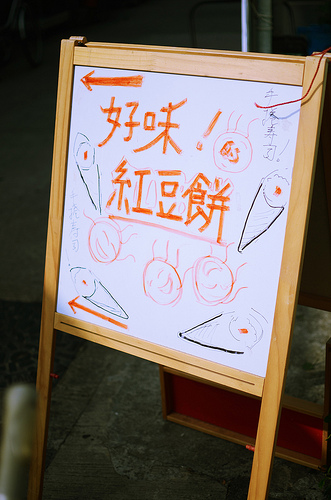 好味！
紅豆餅
手捲壽司！
手捲壽司